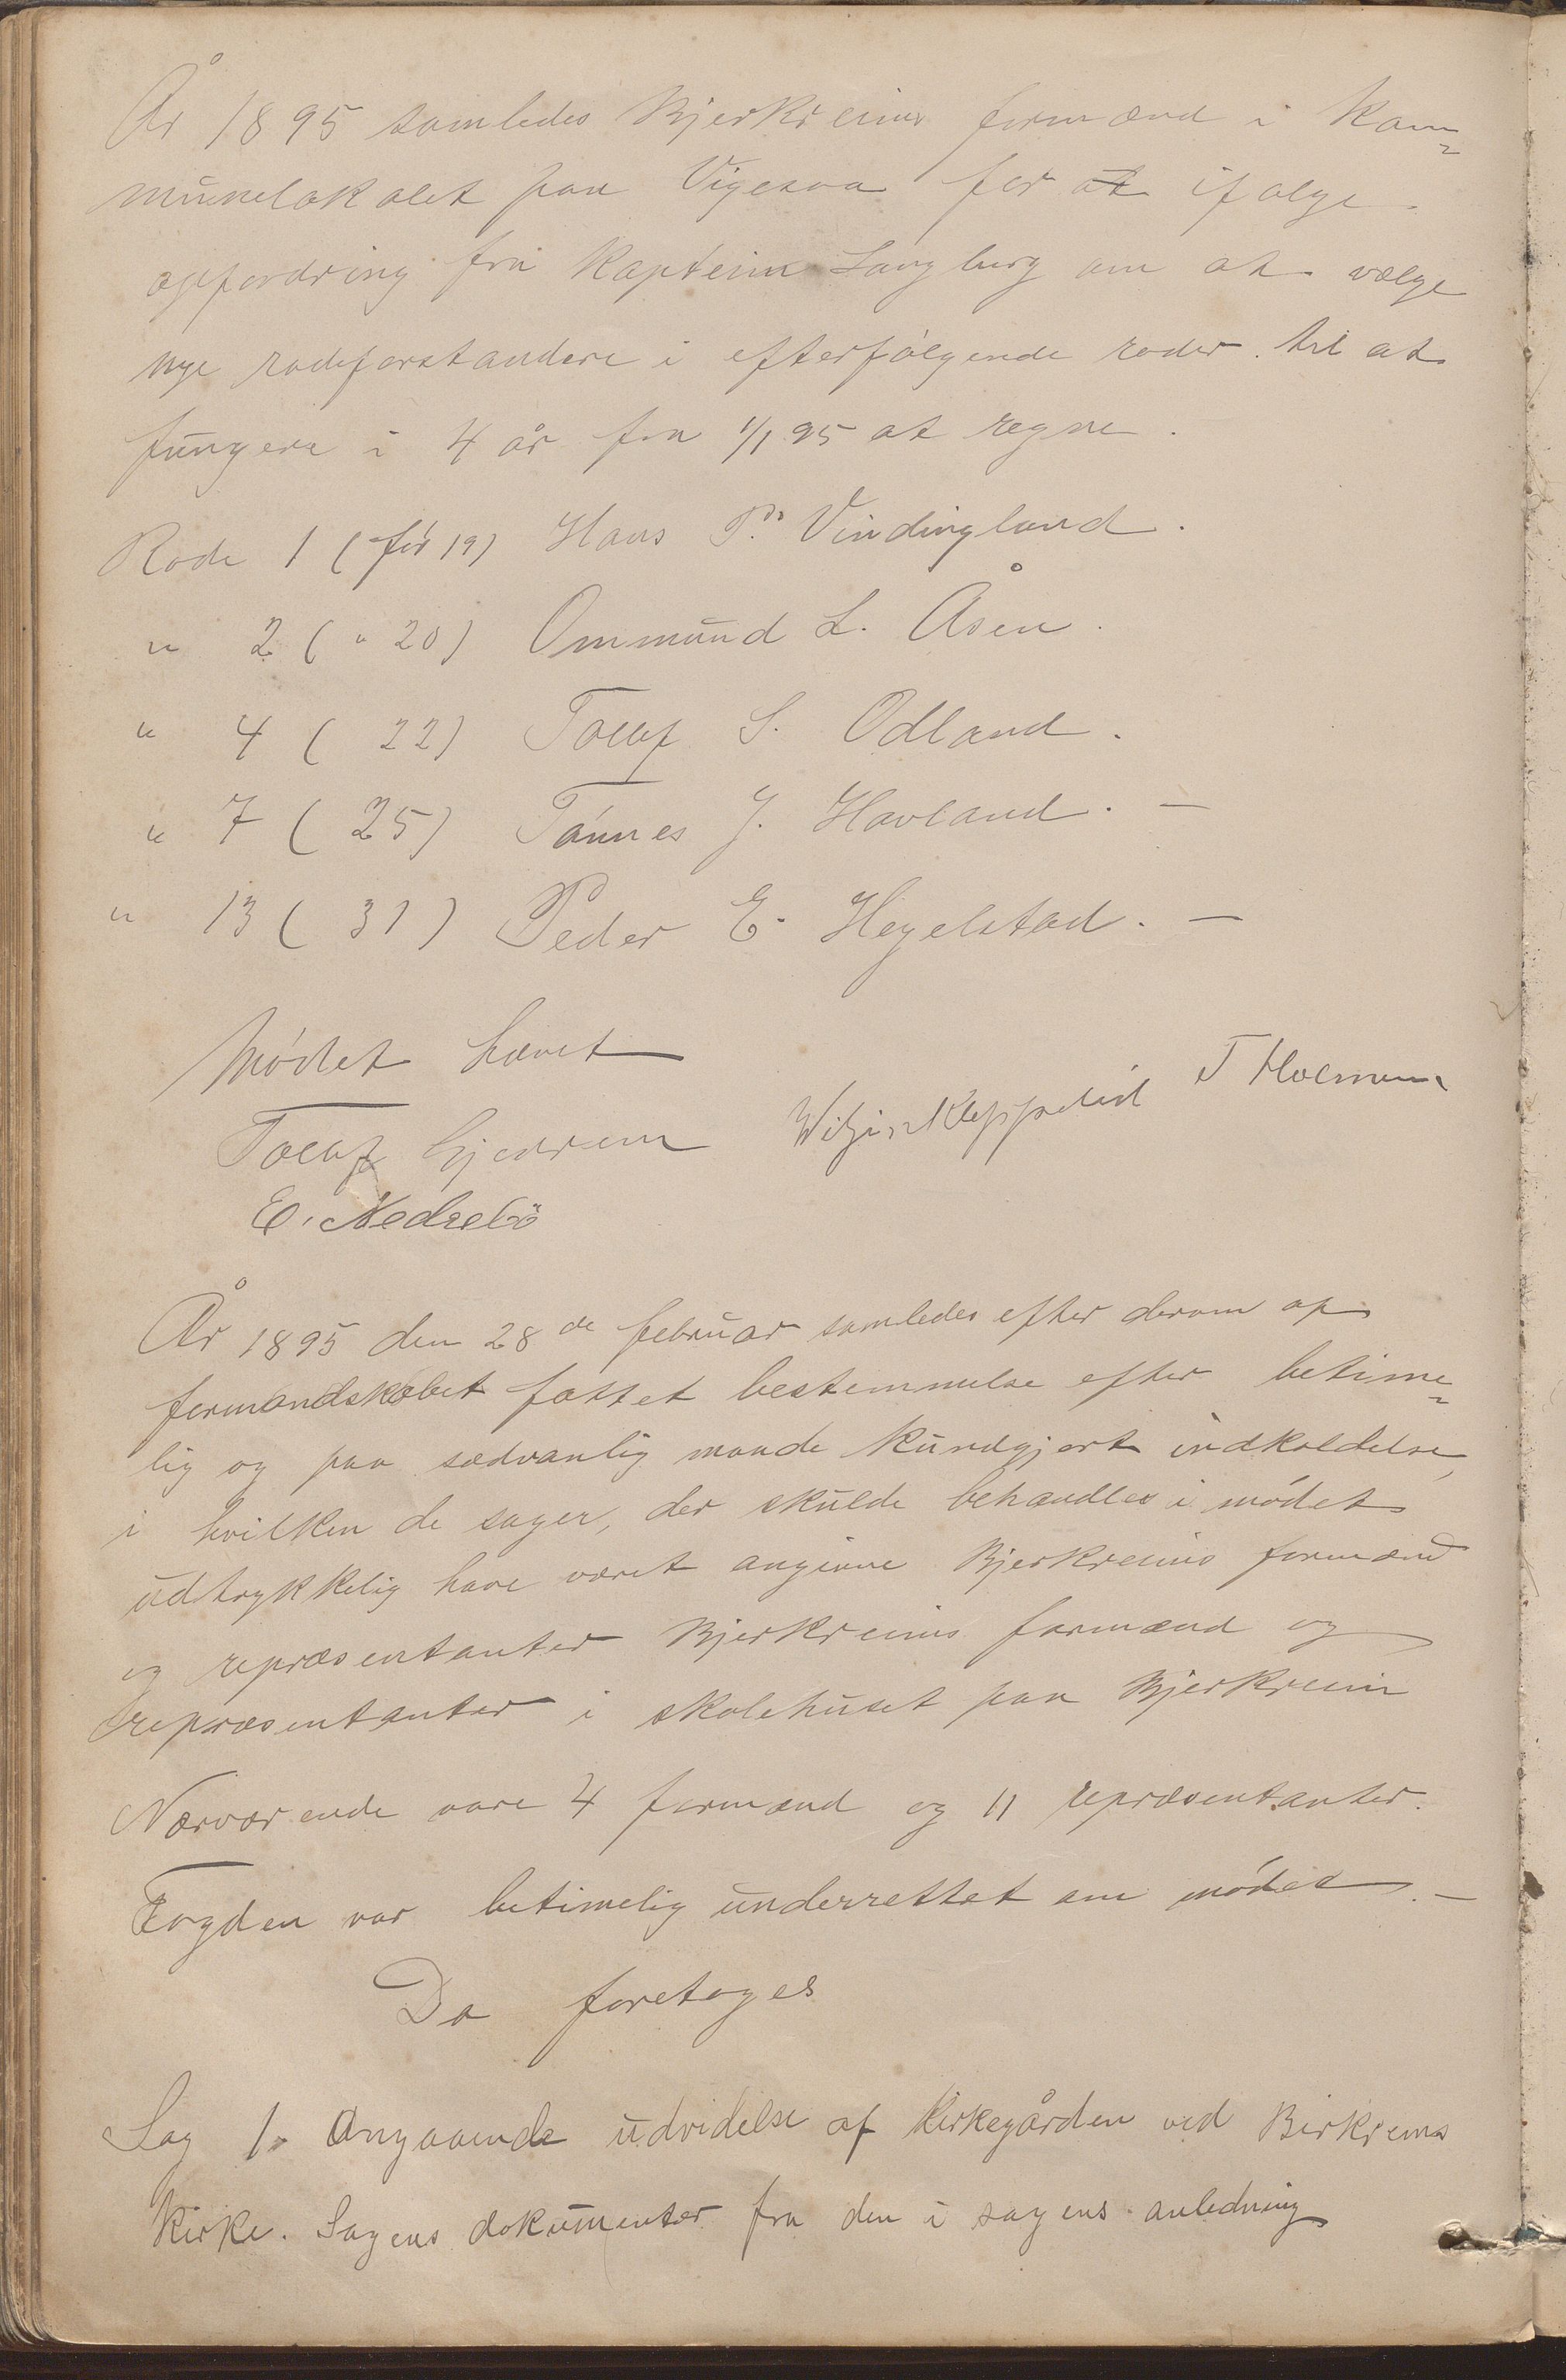 År 1895 samledes Bjerkreims formænd i Kom=
munelokalet paa Vigesaa for at ifølge
opfordring fra Kaptein Langberg om at vælge
nye rodeforstandere i efterfølgende roder til at
fungere i 4 år fra 1/1 95 at regne.
Rode 1 (før 19) Hans P. Vindingland.
" 2 ( " 20) Ommund L. Åsen.
" 4 ( 22) Tollef S. Odland.
" 7 ( 25) Tønnes J. Hovland. —
" 13 ( 31) Peder E. Hegelstad. —
Mødet hævet
Tollef Gjedrem Kleppelid T Holmen
E. Nedrebö
År 1895 den 28de februar samledes efter derom af
formandskabet fattet bestemmelse efter betime=
lig og paa sædvanlig maade kundgjort indkaldelse,
i hvilken de sager, der skulde behandles i mødet
udtrykkelig have været angivne Bjerkreims formænd
og repræsentanter Bjerkreims formænd og
repræsentanter i skolehuset paa Bjerkreim
Nærværende vare 4 formænd og 11 repræsentanter.
Fogden var betimelig underrettet om mødet. —
Da foretoges
Sag 1. Angaaende udvidelse af Kirkegården ved Birkrems
Kirke. Sagens dokumenter fra den i sagens anledning